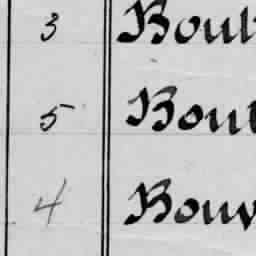 3 Boul
5 Bout
4 Bouv